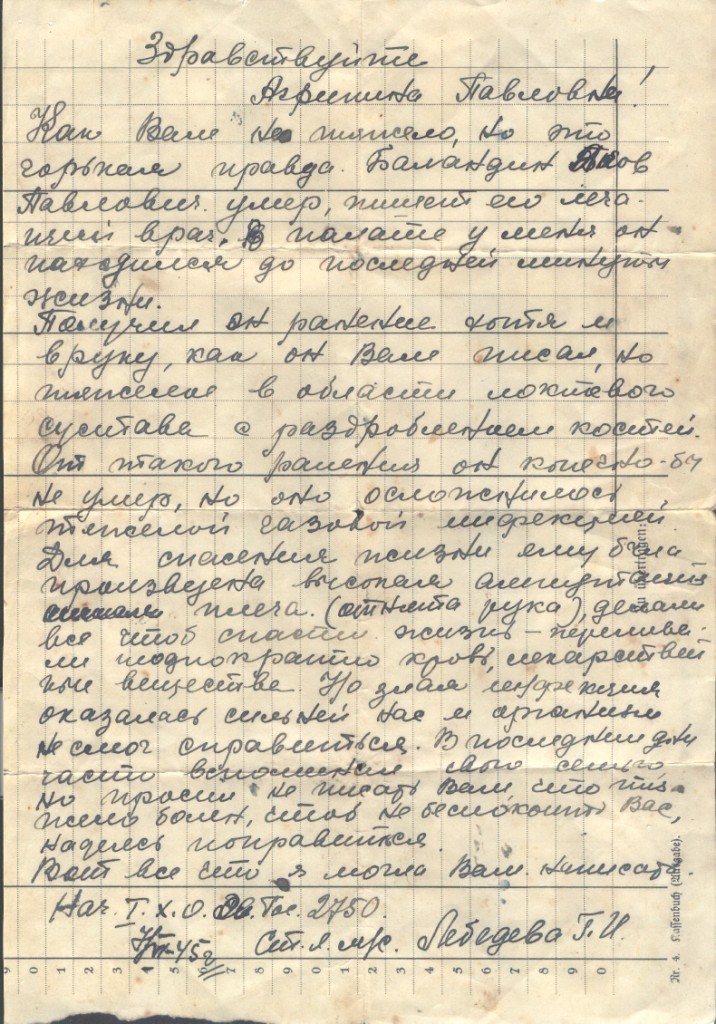 Здравствуйте
Агрипина Павловна!
Как Вам не тяжело, но это
горькая правда. Баландин Яков
Павлович умер, пишет его леча-
щий врач. В палате у меня он
находился до последней минуты
жизни.
Получил он ранение хотя и
в руку, как он Вам писал, но
тяжелое в области локтевого
сустава с раздроблением костей.
От такого ранения он конечно-бы
не умер, но оно осложнилось
тяжелой газовой инфекцией.
Для спасения жизни ему была
произведена высокая ампутация
плеча. (отнята рука), делали
все чтоб спасти жизнь – перелива-
ли неоднократно кровь, лекарствен
ные вещества. Но злая инфекция
оказалась сильней нас и организм
не смог справиться. В последние дни
часто вспоминал свою семью,
но просил не писать Вам, что тя-
жело болен, чтоб не беспокоить Вас,
надеясь поправиться.
Вот все что я могла Вам написать.
Нач. I. х. о. Гос. 2750.
45г Ст. л. м/с. Лебедева Г. И.
9 0 1 2 3 4 5 6 7 8 9 0 1 2 3 4 5 6 7 8 9 0
Nr. 4. Kassenbuch (Ausgabe).